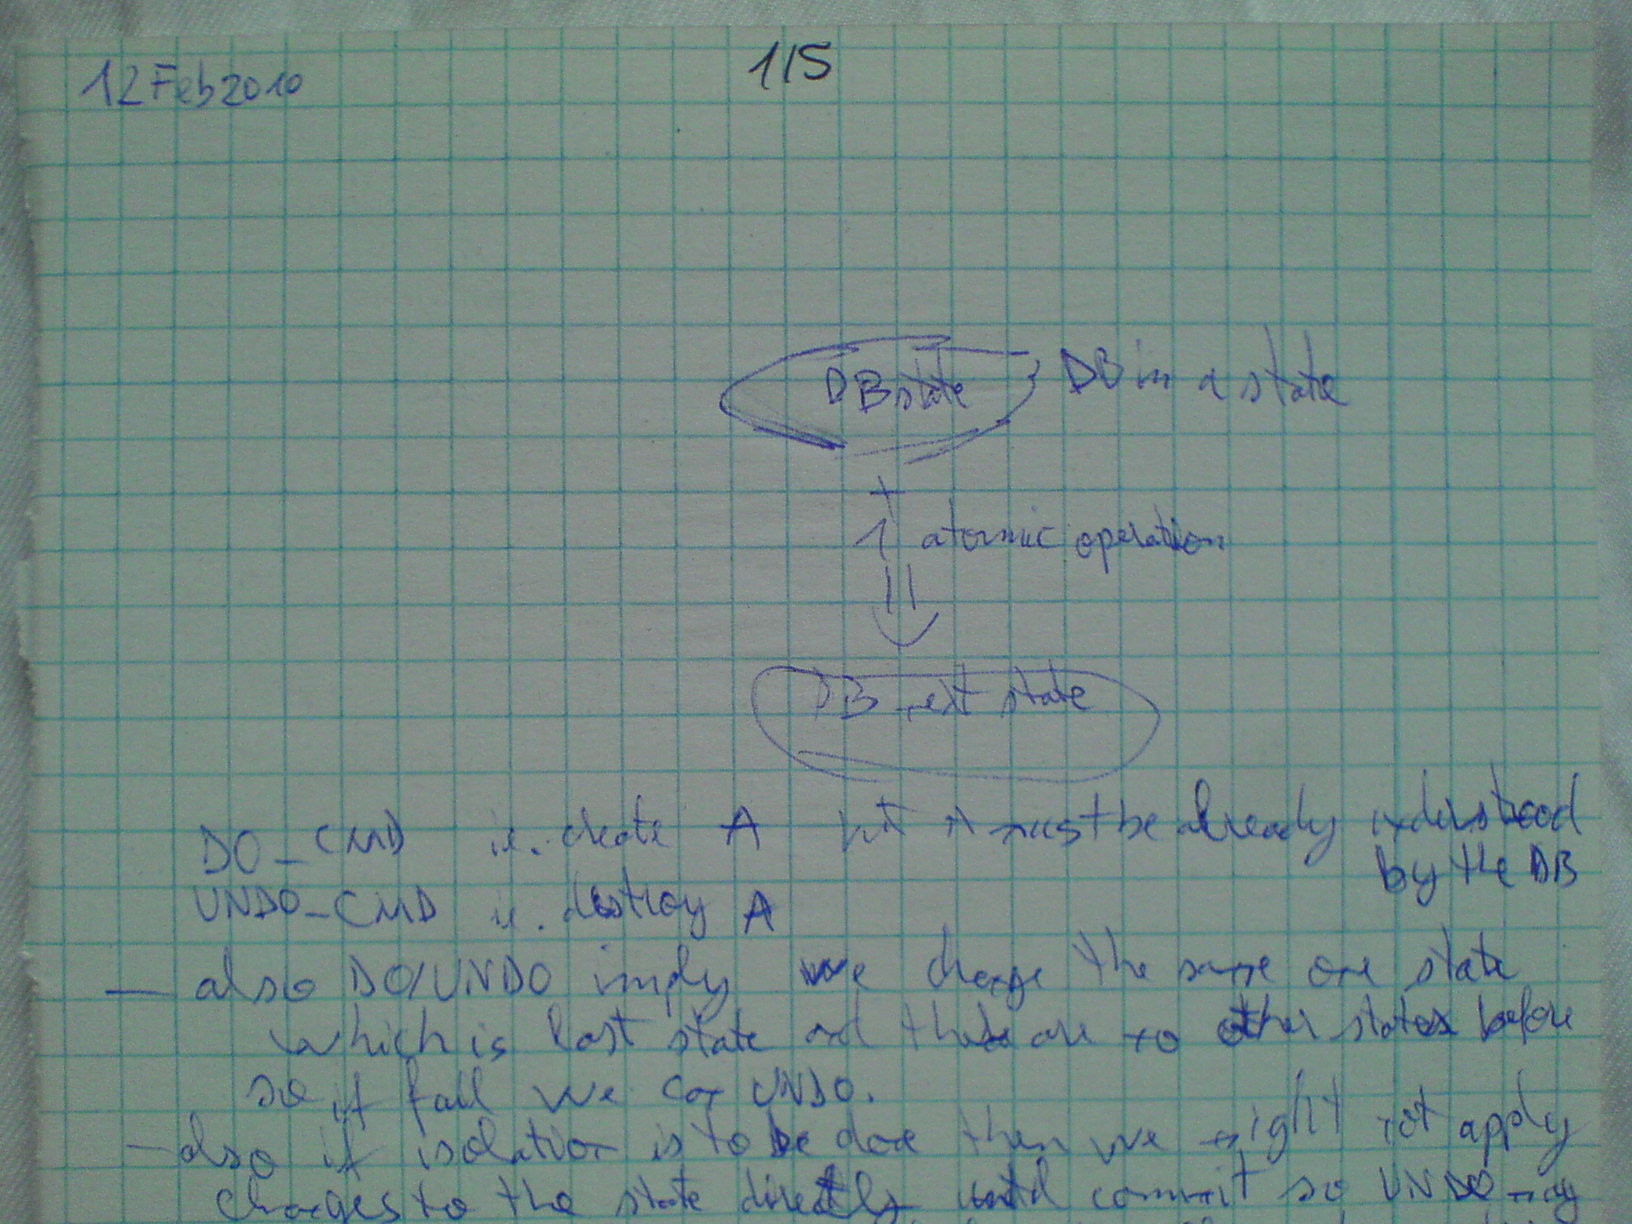 12 Feb 2010
1/5
DB state
DB in a state
+
1 atomic operation
DB next state
DO_CMD ie. create A but A must be already understood
by the DB
UNDO_CMD ie. destroy A
— also DO/UNDO imply we change the same one state
which is last state and there are no other states before
so if fail we can UNDO.
— also if isolation is to be done then we might not apply
changes to the state directly until commit so UNDO may